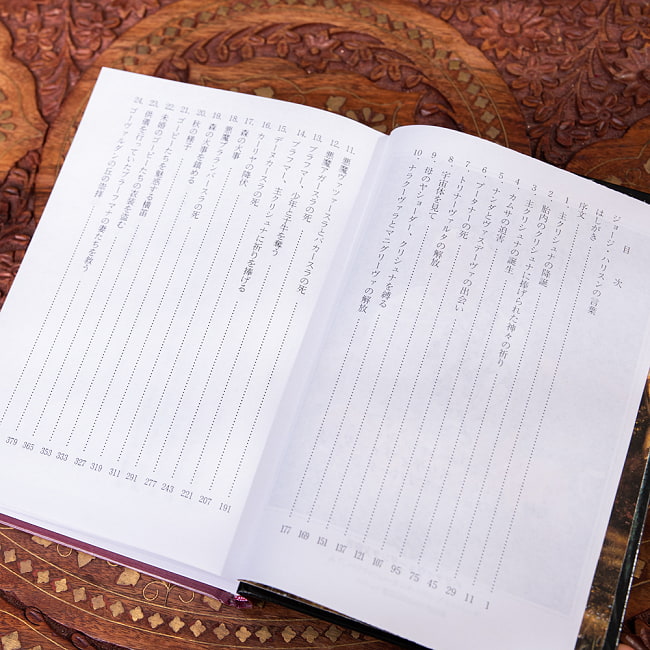 目次
ジョージ・ハリスンの言葉
はしがき
序文
1. 主クリシュナの降誕
2. 胎内のクリシュナに捧げられた神々の祈り
3. 主クリシュナの誕生
4. カムサの迫害
5. ナンダとヴァスデーヴァの出会い
6. プータナーの死
7. トリナーヴァルタの解放
8. 宇宙体を見て
9. 母のヤショーダー、クリシュナを縛る
10. ナラクーヴァラとマニグリーヴァの解放
177 169 151 137 121 107 95 75 45 29 11 1
11. 悪魔ヴァツァースラとバカースラの死
12. 悪魔アガースラの死
13. ブラフマー、少年と子牛を奪う
14. ブラフマー、主クリシュナに祈りを捧げる
15. デーヌカースラの死
16. カーリヤの降伏
17. 森の火事
18. 悪魔プラランバースラの死
19. 森の火事を鎮める
20. 秋の様子
21. ゴーピーたちを魅惑する横笛
22. 未婚のゴーピーたちの衣装を盗む
23. 供儀を行っていたブラーフマナの妻たちを救う
24. ゴーヴァルダンの丘の崇拝
379 365 353 333 327 319 311 291 277 243 221 207 191